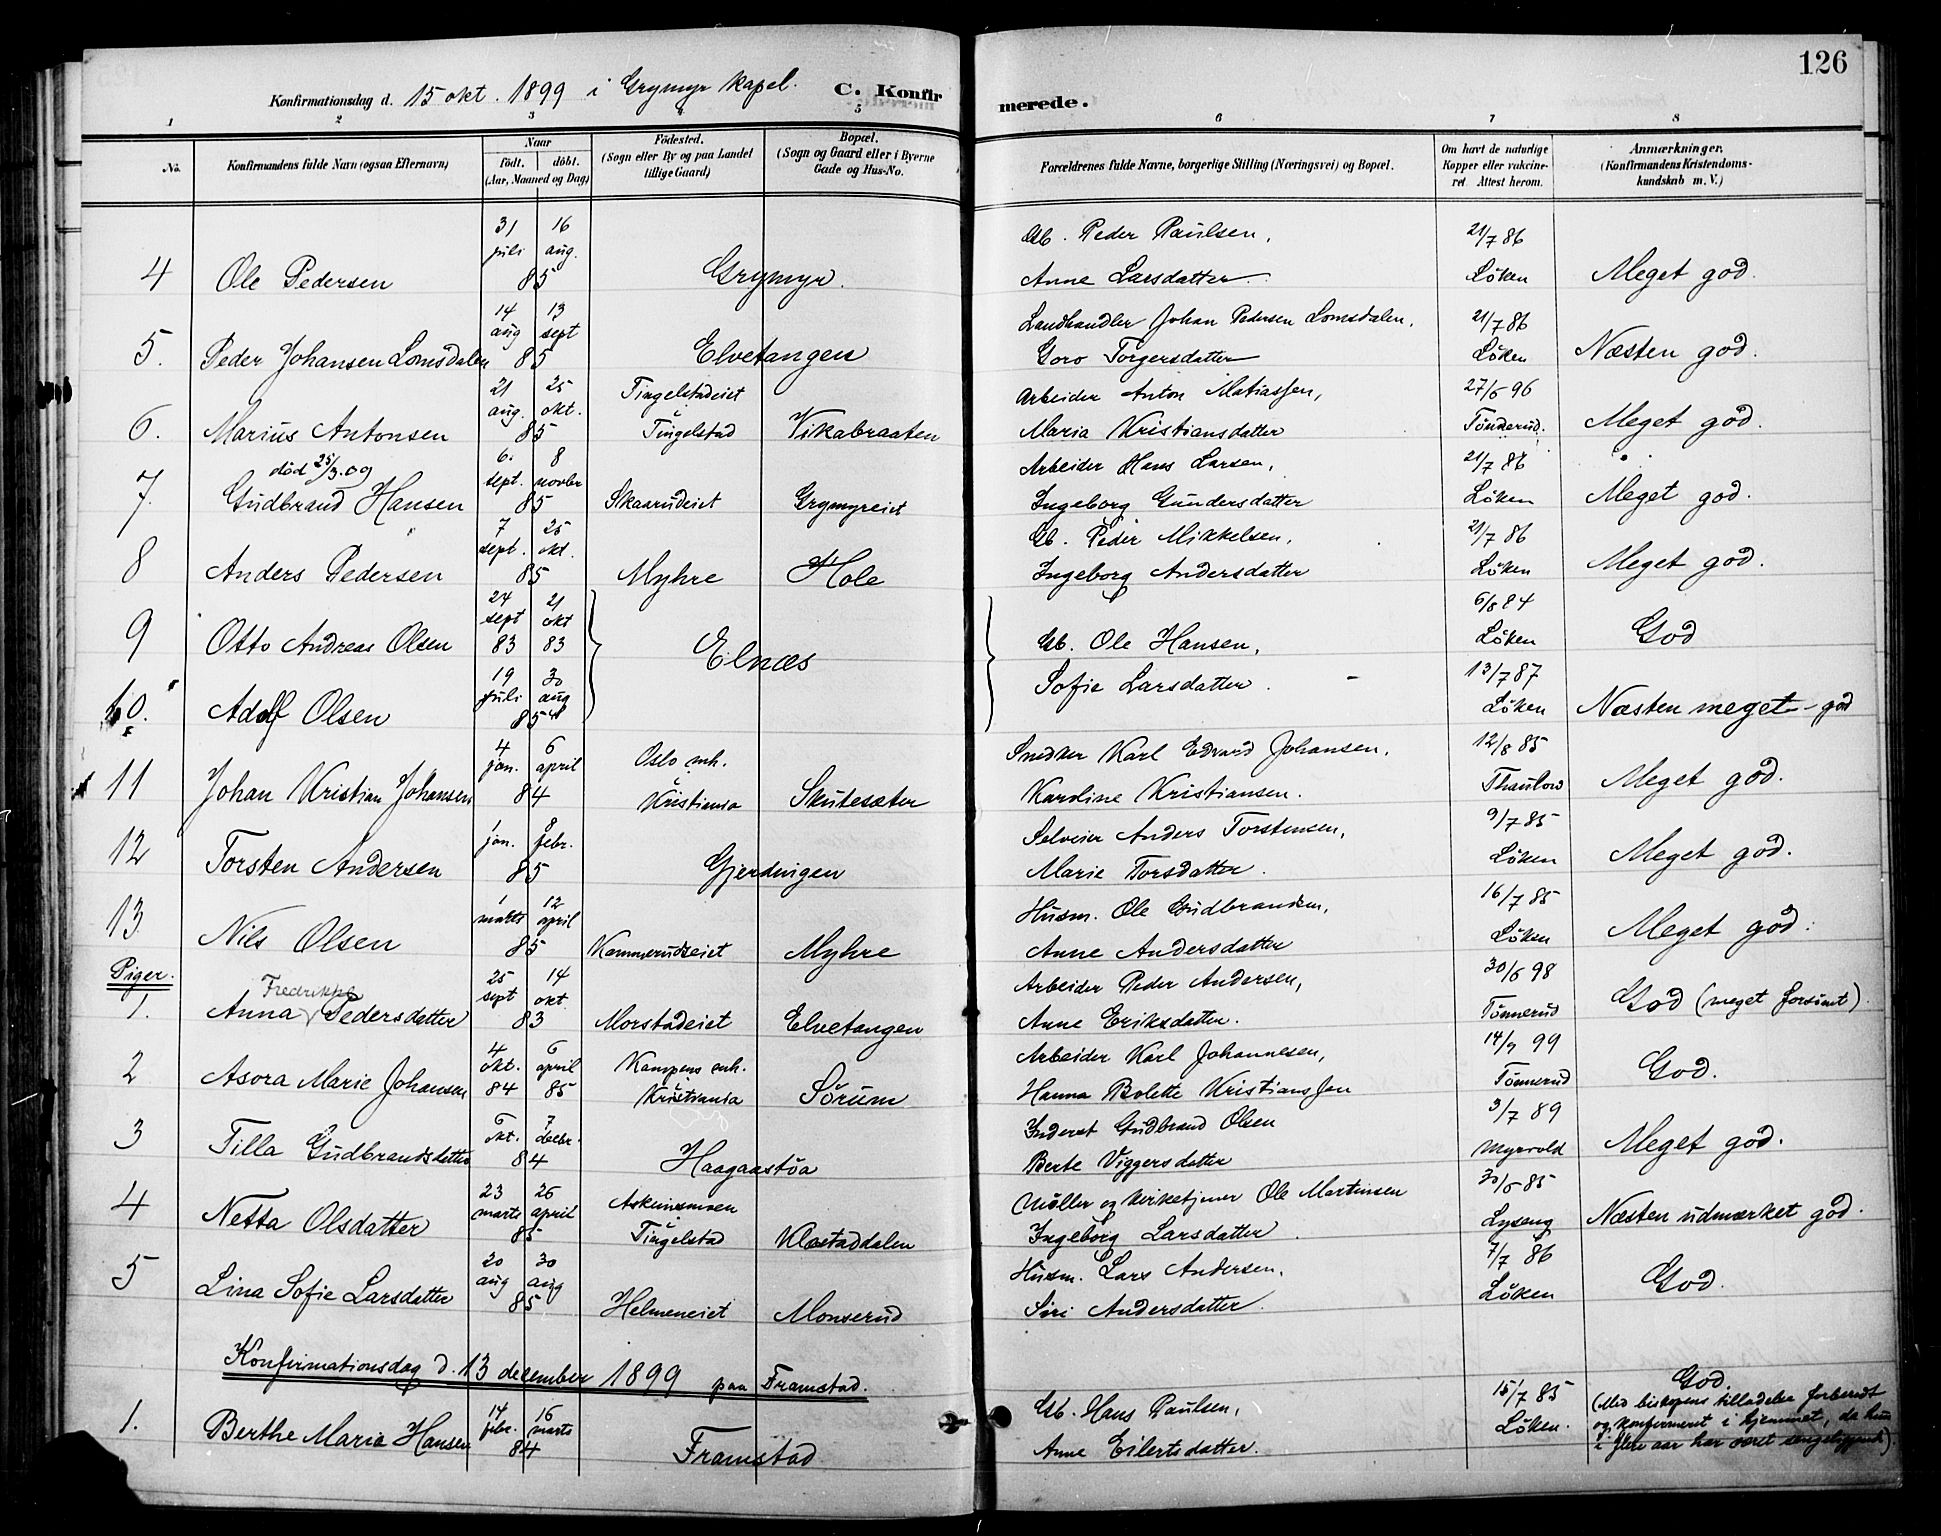 126
Konfirmationsdag d. 15 okt. 1899 i Grymyr kapel. C. Konfirmerede.
1 2 3 4 5 6 7 8
No. Konfirmandens fulde Navn (ogsaa Efternavn) Naar født. døbt. (Aar, Maaned og Dag) Fødested. (Sogn eller By og paa Landet tillige Gaard) Bopæl. (Sogn og Gaard eller i Byerne Gade og Hus-No. Forældrenes fulde Navne, borgerlige Stilling (Næringsvei) og Bopæl. Om havt de naturlige Kopper eller vakcineret. Attest herom. Anmærkninger. (Konfirmandens Kristendomskundskab m. V.)
31 juli 16 aug. Gb. Peder Paulsen, 21/7 86
4 Ole Pedersen 85 Grymyr. Anne Larsdatter Løken Meget god.
14 aug 13 sept Landhandler Johan Pedersen Lomsdalen, 21/7 86
5. Peder Johansen Lomsdalen 85 Elvetangen Goro Torgersdatter Løken Næsten god.
21 aug. 25 okt. Tingelstadeiet Arbeider Anton Matiassen, 27/6 96
6. Marius Antonsen 85 Tingelstad Vikabraaten Maria Kristiansdatter Tönnerud. Meget god.
død 25/3.09 6. sept. 8 novbr Arbeider Hans Larsen, 21/7 86
7. Gudbrand Hansen 85 Skaarudeiet Grymyreiet Ingeborg Gundersdatter Løken Meget god.
7 sept. 25 okt. Gb. Peder Mikkelsen, 21/7 86
8 Anders Pedersen 85 Myhre Hole Ingeborg Andersdatter Løken Meget god.
24 sept 21 okt 6/8 84
9 Otto Andreas Olsen 83 83 Elnæs Gb. Ole Hansen, Løken God
19 juli 30 aug Sofie Larsdatter. 13/7 87
10. Adolf Olsen 85 Løken Næsten meget god
4 jan. 6 april Oslo mh. Snedker Karl Edvard Johansen, 12/8 85
11 Johan Kristian Johansen 84 Kristiania Skutesæter Karoline Kristiansen. Thaulow Meget god.
1 jan. 8 febr. Selveier Anders Torstensen, 9/7 85
12 Torsten Andersen 85 Gjerdingen Marie Torsdatter. Løken Meget god.
1 marts 12 april Husm. Ole Gudbrandsen, 16/7 85
13. Nils Olsen 85 Kammerudseiet Myhre Anne Andersdatter Løken Meget god.
Piger.
Fredrikke 25 sept 14 okt Arbeider Peder Andersen, 30/6 98
1. Anna Pedersdatter 83 Morstadeiet Elvetangen Anne Eriksdatter. Tönnerud God (meget forsömt).
4 okt. 6 april Kampens mh. Arbeider Karl Johannesen, 14/7 99
2 Asora Marie Johansen 84 85 Kristiania Sörum Hanna Bolette Kristianssen Tönnerud God.
6 okt. 7 decbr. Inderst Gudbrand Olsen 3/7 89
3 Tilla Gudbrandsdatter 84 Haagaastöa Berte Viggersdatter Myrvold Meget god.
23 marts 26 april Askimsmoen Møller og kirketjener Ole Martinsen 30/6 85
4 Netta Olsdatter 85 Tingelstad Klæstaddalen Ingeborg Larsdatter. Lyseng Næsten udmærket god.
20 aug 30 aug Husm. Lars Andersen, 7/7 86
5 Lina Sofie Larsdatter 85 Helmeneiet Monserud Siri Andersdatter. Løken God.
Konfirmationsdag d. 13 december 1899 paa Framstad.
14 febr. 16 marts Gb. Hans Paulsen, 15/7 85 God
1. Berthe Marie Hansen 84 Framstad Anne Eilertsdatter. Løken. (Med biskopens tilladelse forberedt
og konfirmeret i hjemmet, da hun
i flere aar har været sengeliggende)